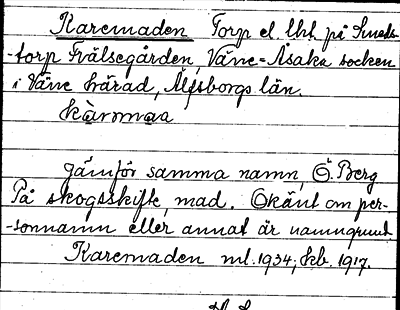 Karemaden Torp el. lht. på Smeds-
-torp Frälsegården, Väne-Åsaka socken
i Väne härad, Älfsborgs län.
kàrmaa
Jämför samma namn, Ö. Berg
På skogsskifte, mad. Okänt om per-
-sonnamn eller annat är namngrund
Karemaden ml. 1934; kb. 1917.